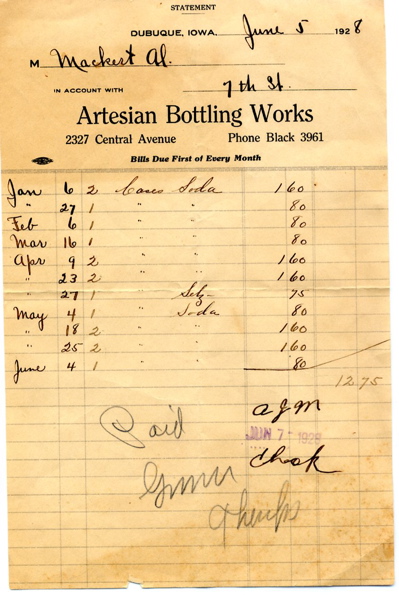 STATEMENT
DUBUQUE, IOWA, June 5 1928
M Mackert Al.
IN ACCOUNT WITH 7th St.
Artesian Bottling Works
2327 Central Avenue Phone Black 3961
Bills Due First of Every Month
Jan 6 2 Cases Soda 1 60
" 27 1 " " 80
Feb 6 1 " " 80
Mar 16 1 " " 80
Apr 9 2 " " 1 60
" 23 2 " " 1 60
" 27 1 " Selz 75
May 4 1 " Soda 80
" 18 2 " " 1 60
" 25 2 " " 1 60
June 4 1 " " 80
12 75
Paid
JUN 7 - 1928